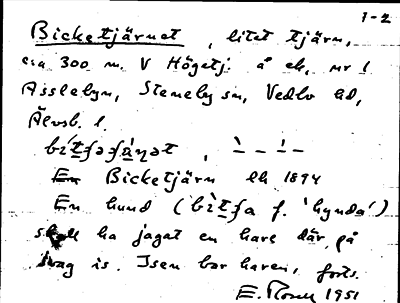 1-2
Bicketjärnet, litet tjärn,
ca 300 m. V Högetj. å ek, nr 1
Asslebyn, Steneby sn, Vedbo hd,
Älvsb. l.
Bicketjärn ek 1894
En hund ( f. 'hynda')
skall ha jagat en hare där på
svag is. Isen bar haren, forts.
1951